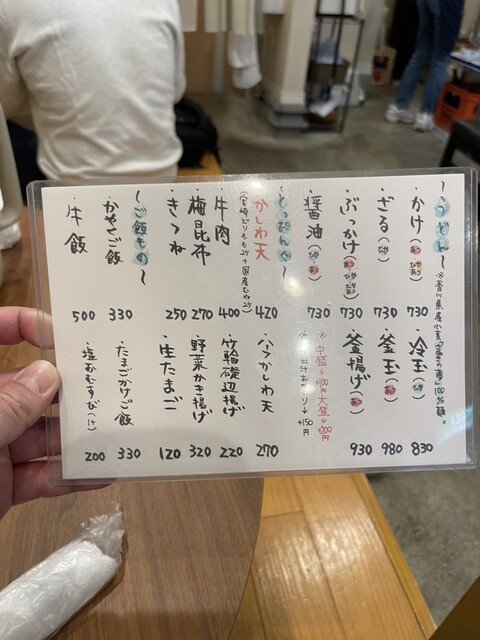 〜うどん〜
※香川県産小麦「さぬきの夢」100%麺。
・かけ(あつ・ひやあつ) 730
・ざる(ひや) 730
・ぶっかけ(あつ・ひや・ひやあつ) 730
・醤油(ひや・あつ) 730
・冷玉(ひや) 830
・釜玉(あつ) 980
・釜揚げ(あつ) 930
※中盛→+100円 大盛→+200円
〜とっぴんぐ〜
・かしわ天 420
(宮崎どりもも2ケ+国産むね2ケ)
・牛肉 400
・梅昆布 270
・きつね 250
・ハーフかしわ天 270
・竹輪磯辺揚げ 220
・野菜かき揚げ 320
・生たまご 120
〜ご飯もの〜
・かやくご飯 330
・牛飯 500
・たまごかけご飯 330
・塩おむすび(1ケ) 200